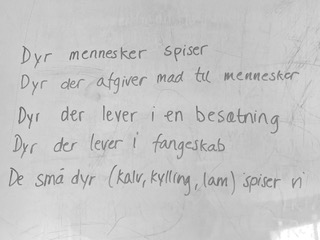 Dyr mennesker spiser
Dyr der afgiver mad til mennesker
Dyr der lever i en besætning
Dyr der lever i fangeskab
De små dyr (kalv, kylling, lam) spiser vi